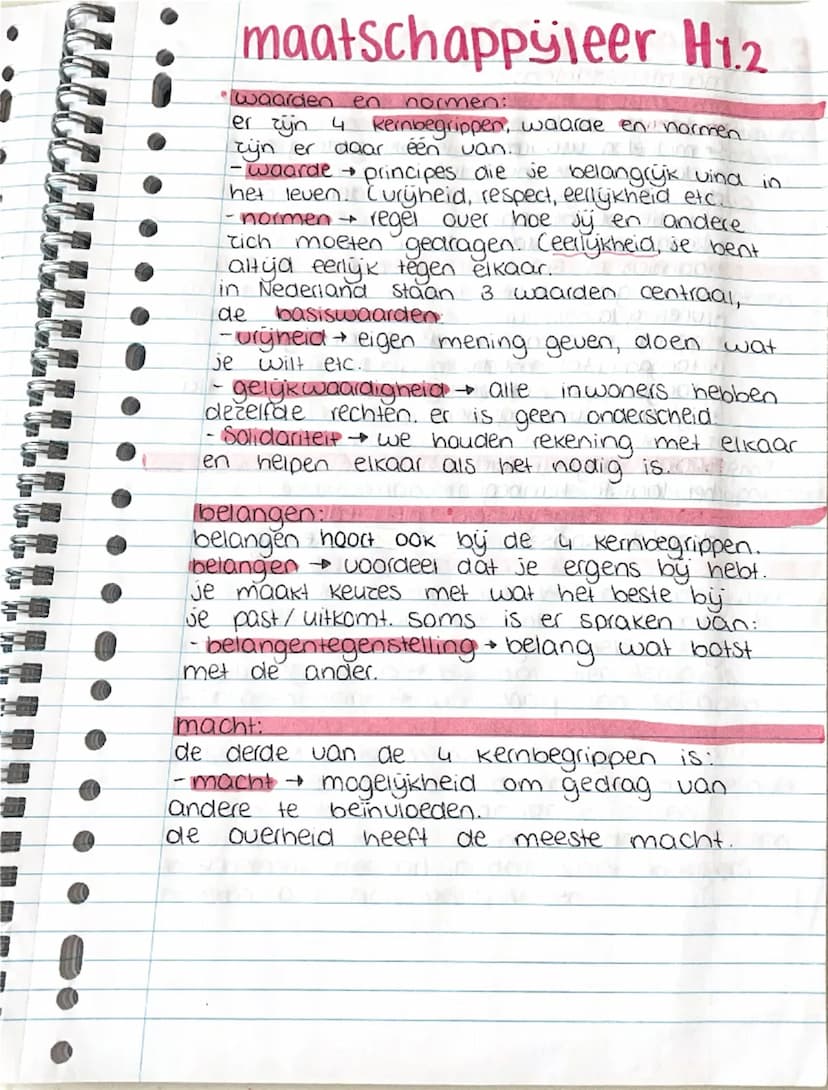 maatschappijleer H1.2
• waarden en normen:
er zijn 4 kernbegrippen, waarde en normen
zijn er daar één van.
- waarde → principes die je belangrijk vind in
het leven. (vrijheid, respect, eerlijkheid etc.
- normen → regel over hoe jij en andere
zich moeten gedragen. (eerlijkheid, je bent
altijd eerlijk tegen elkaar.
in Nederland staan 3 waarden centraal,
de basiswaarden:
- vrijheid → eigen mening geven, doen wat
je wilt etc.
- gelijkwaardigheid → alle inwoners hebben
dezelfde rechten. er is geen onderscheid.
- Solidariteit → we houden rekening met elkaar
en helpen elkaar als het nodig is.
belangen:
belangen hoort ook bij de 4 kernbegrippen.
belangen → voordeel dat je ergens bij hebt.
je maakt keuzes met wat het beste bij
je past/uitkomt. soms is er spraken van:
- belangentegenstelling → belang wat botst
met de ander.
macht:
de derde van de 4 kernbegrippen is:
- macht → mogelijkheid om gedrag van
andere te beïnvloeden.
de overheid heeft de meeste macht.